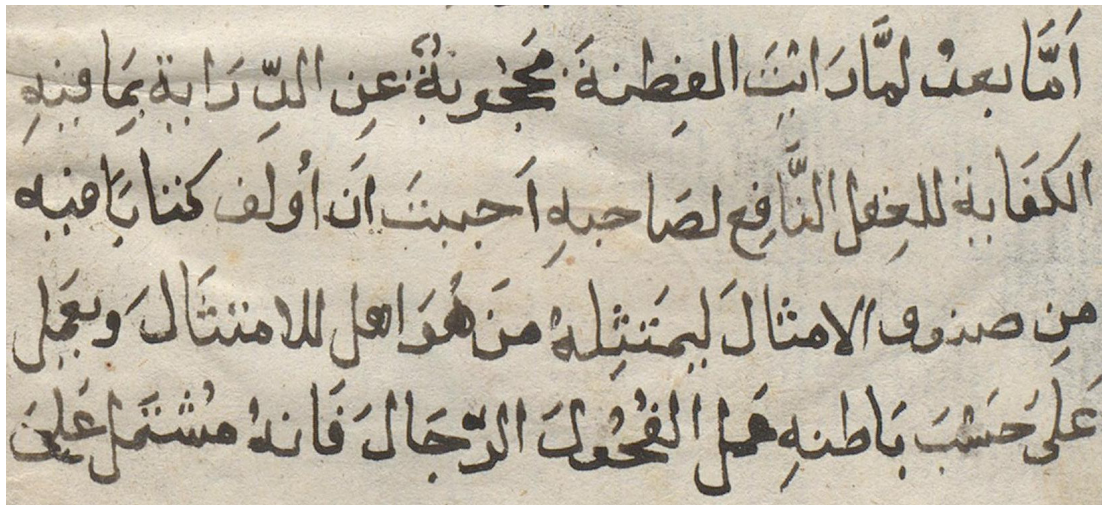 اَمَّا بعدُ لمَّا رَاَيْتَ الفِطْنةَ مَحْجُوبَةً عَنِ الدِّرَايَةِ بِمَا فيْهِ
الكفَايةُ للعِقلِ النَّافِعِ لصَاحبهِ اَحببتَ اَن اُولف كتابًا فيه
مِن صنوف الامثالَ لِيَمتَثِلهُ مَن هُوَ اهل للامتثَالَ وَيعمَل
عَلىَ حَسَبَ بَاطنهِ عَمل الفُحُولَ الرّجَالَ فَانهُ مُشْتَمل عَلىَ